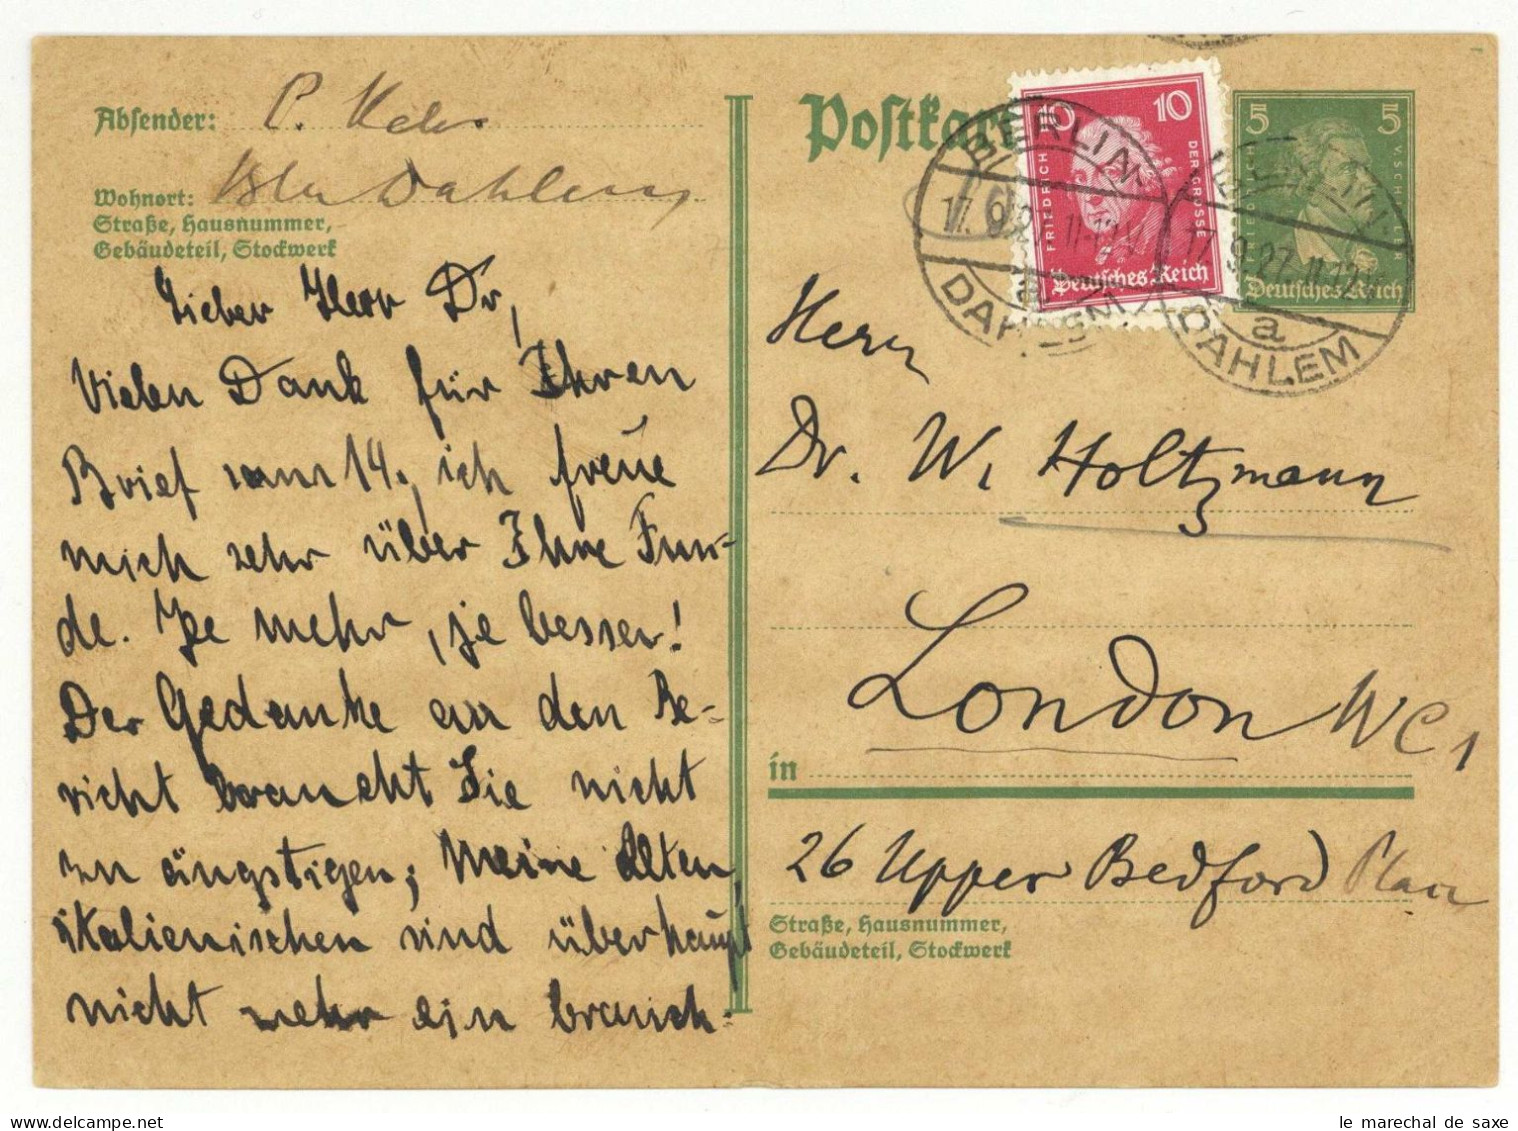 Absender: P. Kehr
Wohnort: Bln Dahlem
Straße, Hausnummer,
Gebäudeteil, Stockwerk
Lieber Herr Dr,
Vielen Dank für Ihren
Brief vom 14., ich freue
mich sehr über Ihre Fun-
de. Je mehr, je besser!
Der Gedanke an den Be-
richt braucht Sie nicht
zu ängstigen; Meine alten
italienischen sind überhaupt
nicht mehr ein brauch-
Postkar
10 10
FRIEDRICH
DER GROSSE
Deutsches Reich
5 5
FR
V. SCHILLER
Deutsches Reich
BERLIN
17. 9. 27. 11-12
a
DAHLEM
BERLIN
17. 9. 27. 11-12
a
DAHLEM
Herrn
Dr. W. Holtzmann
London WC1
in
26 Upper Bedford Place
Straße, Hausnummer,
Gebäudeteil, Stockwerk
le marechal de saxe